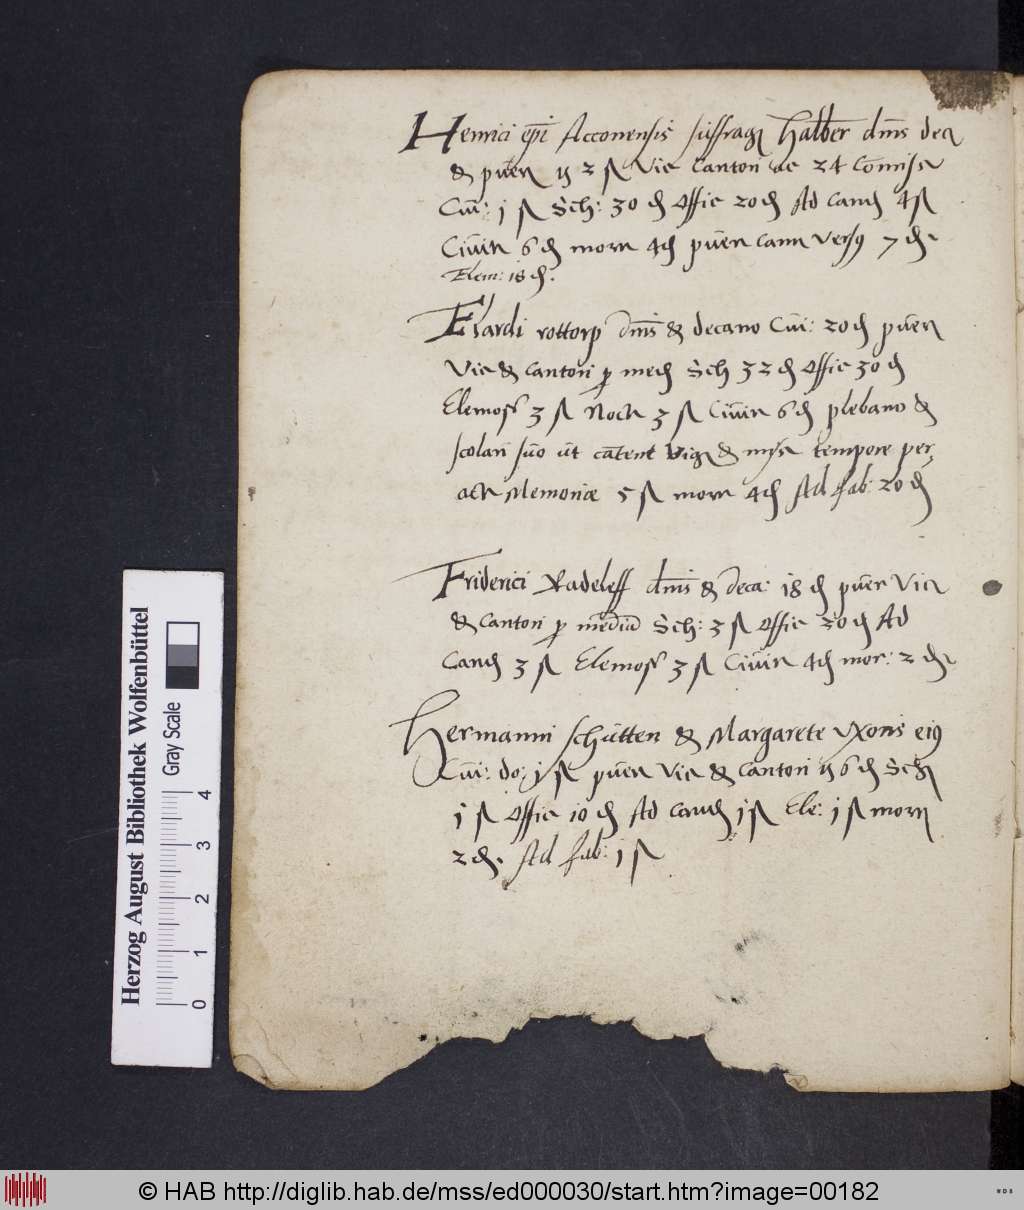 Henrici epi Acconensis suffrag Halber dnis dec
& puer 15 2 ß Vic Cantori ac 24 Comise
Cui: j ß Sch: 30 d Offic 20 d Ad Cand 4 ß
Civir 6 d morn 4 d puer cann versg 7 d
Elem: 18 d.
Elardi rottorp dnis & decano Cui: 20 d puer
Vic & Cantori p med Sch 32 d Offic 30 d
Elemos 3 ß Noct 3 ß Civir 6 d plebano &
scolari suo ut catent vig & misse tempore per,
acte Memoriæ 5 ß morn 4 d Ad fab: 20 d
Friderici Radeleff dnis & deca: 18 d puer Vic
& Cantori p media Sch: 3 ß Offic 20 d Ad
Cand 3 ß Elemos 3 ß Civir 4 d mor: 2 d
Hermanni Schutten & Margarete Vxoris eig
Cui: do: j ß puer Vic & Cantori 15 6 d Sch
j ß Offic 10 d Ad Cand j ß Ele: j ß morn
2 d. Ad fab: j ß
Herzog August Bibliothek Wolfenbüttel
Gray Scale
0 1 2 3 4
© HAB http://diglib.hab.de/mss/ed000030/start.htm?image=00182